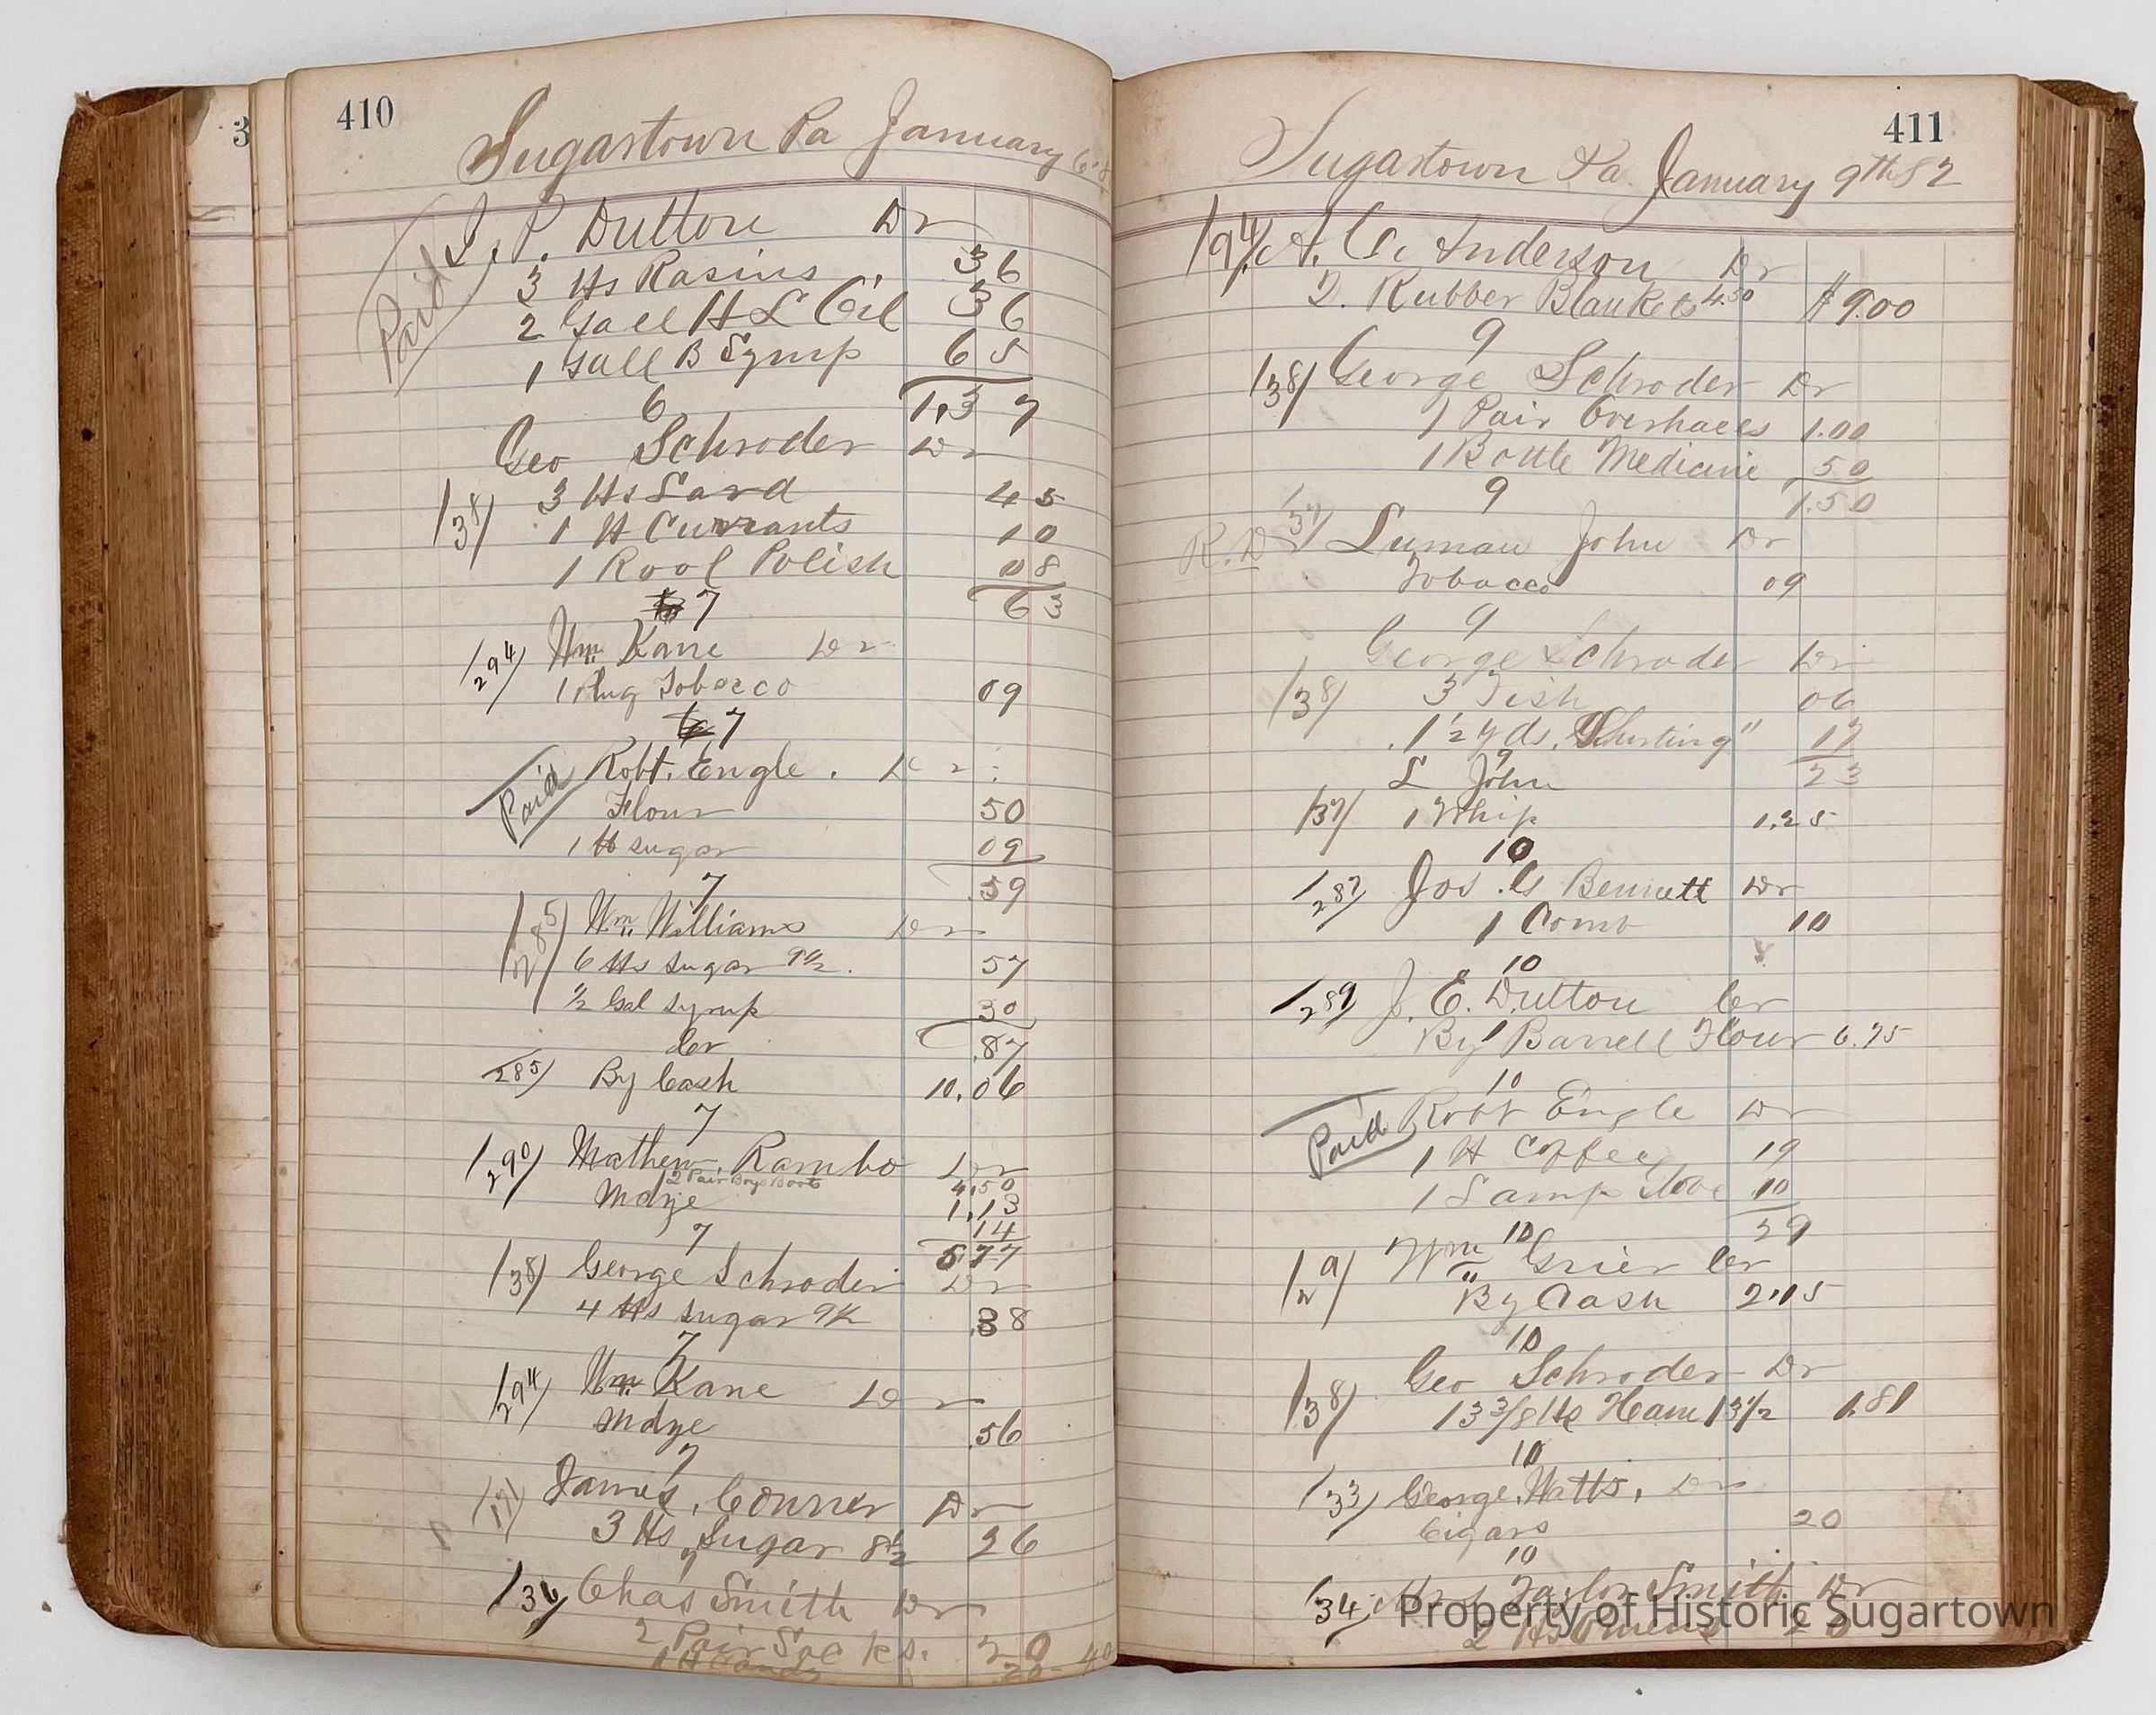 3
410
Sugartown Pa January 6
Paid
J. P. Dutton Dr
3 lbs Rasins 36
2 Gall H L Oil 36
1 Gall B Syrup 65
1,37
6
Geo Schroder Dr
138/ 3 lbs Lard 45
1 lb Currants 10
1 Polish 08
63
7
294/ Wm Kane Dr
1 Plug Tobacco 09
7
Paid
Robt. Engle. Dr
Flour 50
1 lb sugar 09
.59
7
285/ Wm Williams Dr
6 lbs sugar 9 1/2 57
1/2 Gal syrup 30
Cr .87
285/ By Cash 10.06
7
290/ Mathew Rambo Dr
2 Pair Boys Boots 4,50
Mdze 1,13
14
577
7
138/ George Schroder Dr
4 lbs sugar 9 1/2 .38
7
294/ Wm Kane Dr
Mdze .56
7
James Conner Dr
3 lbs Sugar 8 1/2 26
7
Chas Smith Dr
2 Pair Socks. 20
1 lb Candy 20 40
411
Sugartown Pa January 9th 82
A. C. Anderson Dr
2. Rubber Blankets 4.50 $9.00
9
138/ George Schroder Dr
1 Pair Overhalls 1.00
1 Bottle Medicine 50
1.50
9
R.D 137/ Luman John Dr
Tobacco 09
9
George Schroder Dr
138/ 3 Fish 06
1 1/2 yds. Shirting" 17
23
9
L John
137/ 1 Whip 1.25
10
287/ Jos. G Bennett Dr
1 Comb 10
10
289/ J. E. Dutton Cr
By 1 Barrell Flour 6.75
10
Paid
Robt Engle Dr
1 lb Coffee 19
1 Lamp 10
29
10
Wm Grier Cr
By Cash 2.15
10
138/ Geo Schroder Dr
13 3/8 lbs Ham 13 1/2 1.81
10
133/ George Watts, Dr
Cigars 20
10
134/ Taylor Smith Dr
2 lbs
Property of Historic Sugartown